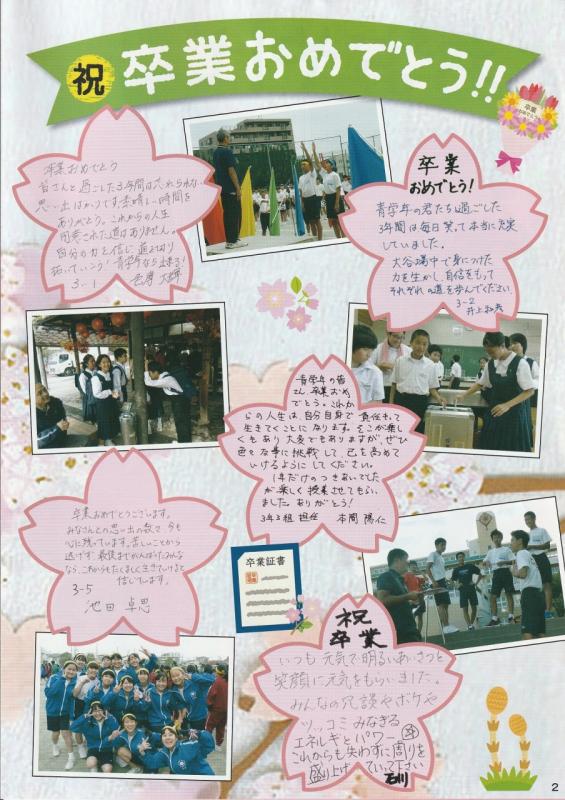 祝 卒業おめでとう!!
卒業
おめでとう
卒業おめでとう
皆さんと過ごした3年間は忘れられない
思い出ばかりです。素晴らしい時間を
ありがとう。これからの人生
用意された道はありません。
自分の力を信じ、道を切り
拓いていこう!青学年なら出来る!
3-1
卒業
おめでとう!
青学年の君たちと過ごした
3年間は毎日笑って本当に充実
していました。
大谷場中で身につけた
力を生かし、自信をもって
それぞれの道を歩んでください。
3-2
井上
青学年の皆
さん、卒業おめ
でとう。これか
らの人生は、自分自身で責任もって
生きてくことになります。そこが楽し
くもあり大変でもありますが、ぜひ
色々な事に挑戦して、己を高めて
いけるようにしてください。
1年だけのつきあいでした
が楽しく授業させてもらい
ました。ありがとう!
3年3組 担任 本間 陽仁
卒業おめでとうございます。
みなさんとの思い出の数々、今も
心に残っています。苦しいことから
逃げず、最後までがんばったみんな
なら、これからもたくましく生きていけると
信じています。
3-5
池田 卓思
卒業証書
祝
卒業
いつも元気で明るいあいさつと
笑顔に元気をもらいました。
みんなの冗談やボケや
ツッコミ みなぎる
エネルギとパワー
これからも失わずに周りを
盛り上げていって下さい
石川
2